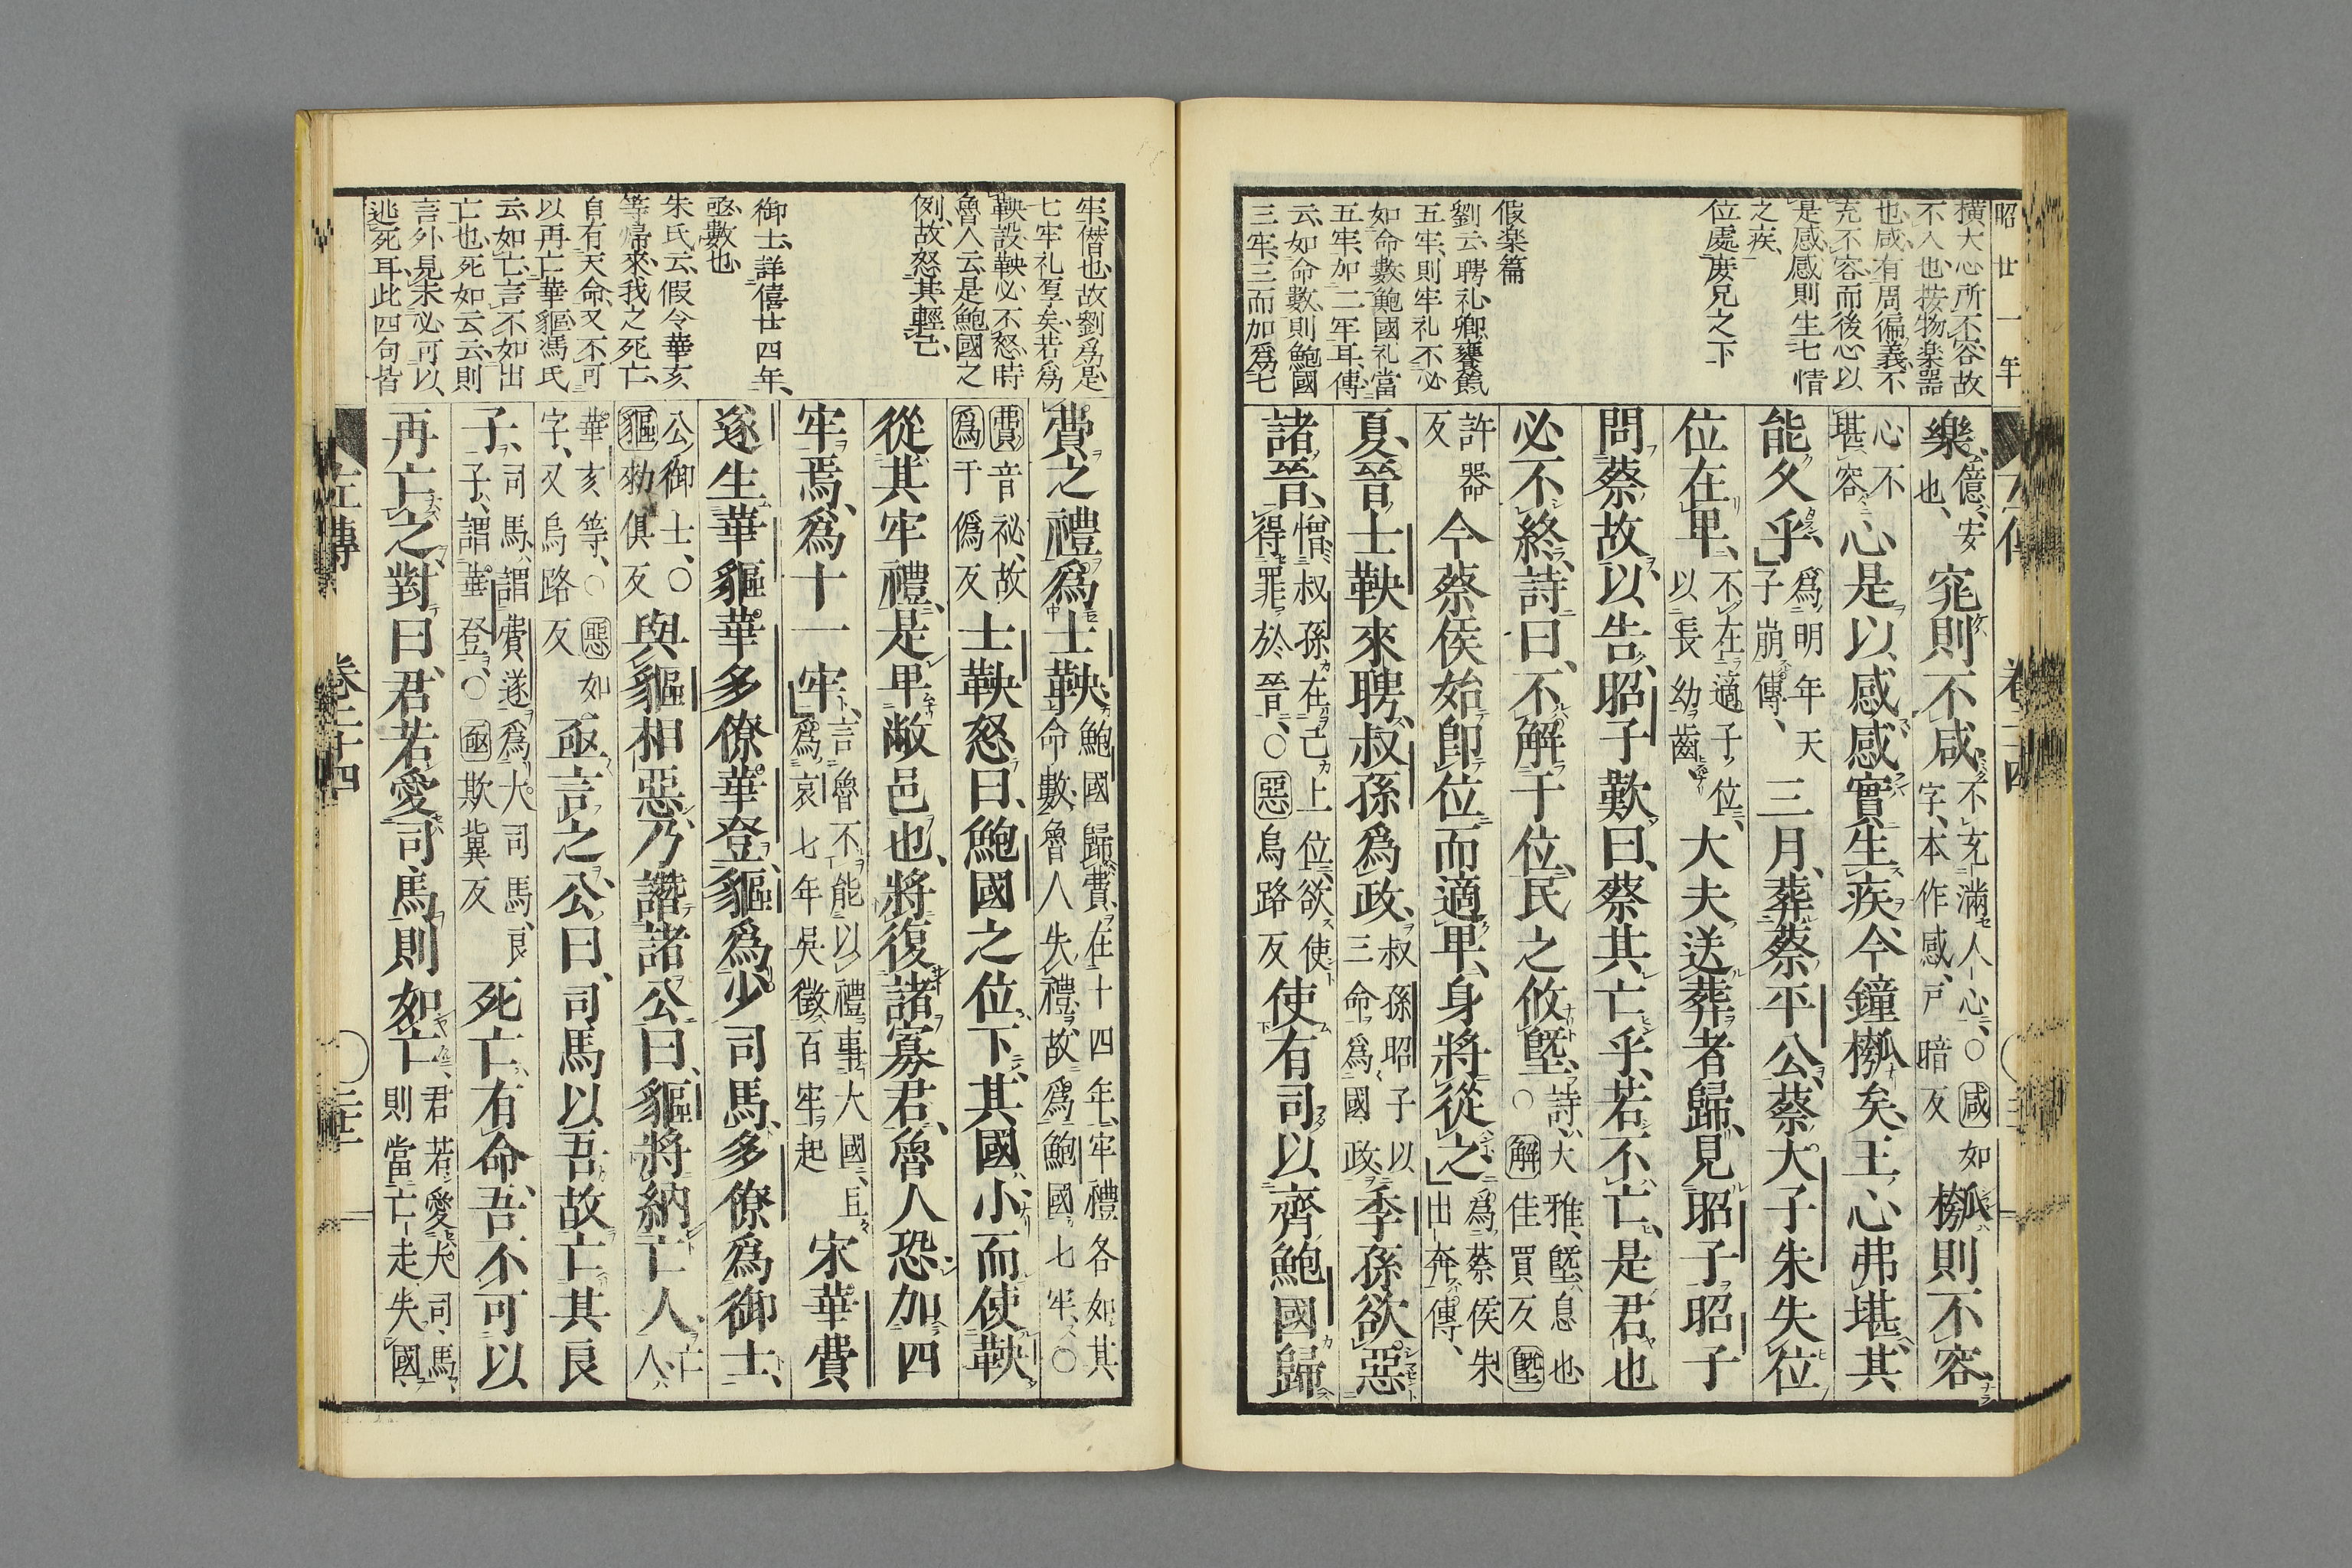 昭廿一年
横大心所不容故
不入也按物楽器
也感有周徧義不
充不容而後心以
是感感則生七情
之疾
位處庶兄之下
假楽篇
劉云聘礼卿饔餼
五牢則牢礼不必
如命數鮑國礼當
五牢加二牢耳傳
云如命數則鮑國
三牢三而加爲七
樂億安也窕則不咸不充滿人心○咸如字本作感戸暗反槬則不容
心不堪容心是以感感實生疾今鐘槬矣王心弗堪其
能久乎爲明年天子崩傳三月葬蔡平公蔡大子朱失位
位在卑不在適子位以長幼齒大夫送葬者歸見昭子昭子
問蔡故以告昭子歎曰蔡其亡乎若不亡是君也
必不終詩曰不解于位民之攸塈詩大雅塈息也○解佳買反塈
許器反今蔡侯始即位而適卑身將從之爲蔡侯朱出奔傳
夏晉士鞅來聘叔孫爲政叔孫昭子以三命爲國政季孫欲惡
諸晉憎叔孫在己上位欲使得罪於晉○惡烏路反使有司以齊鮑國歸
左傳 卷二十四
牢僭也故劉爲是
七牢礼厚矣若爲
鞅設鞅必不怒時
魯人云是鮑國之
例故怒其輕己
御士詳僖廿四年
亟數也
朱氏云假令華亥
等歸來我之死亡
自有天命又不可
以再亡華貙馮氏
云如亡言不如出
亡也死如云云則
言外見未必可以
逃死耳此四句皆
費之禮爲士鞅鮑國歸費在十四年牢禮各如其命數魯人失禮故爲鮑國七牢○
費音祕故爲于僞反士鞅怒曰鮑國之位下其國小而使鞅
從其牢禮是卑敝邑也將復諸寡君魯人恐加四
牢焉爲十一牢言魯不能以禮事大國且爲哀七年吳徵百牢起宋華費
遂生華貙華多僚華登貙爲少司馬多僚爲御士
公御士○貙勑俱反與貙相惡乃譖諸公曰貙將納亡人亡人
華亥等○惡如字又烏路反亟言之公曰司馬以吾故亡其良
子司馬謂費遂爲大司馬良子謂華登○亟欺冀反死亡有命吾不可以
再亡之對曰君若愛司馬則如亡君若愛大司馬則當亡走失國
左傳 卷二十四